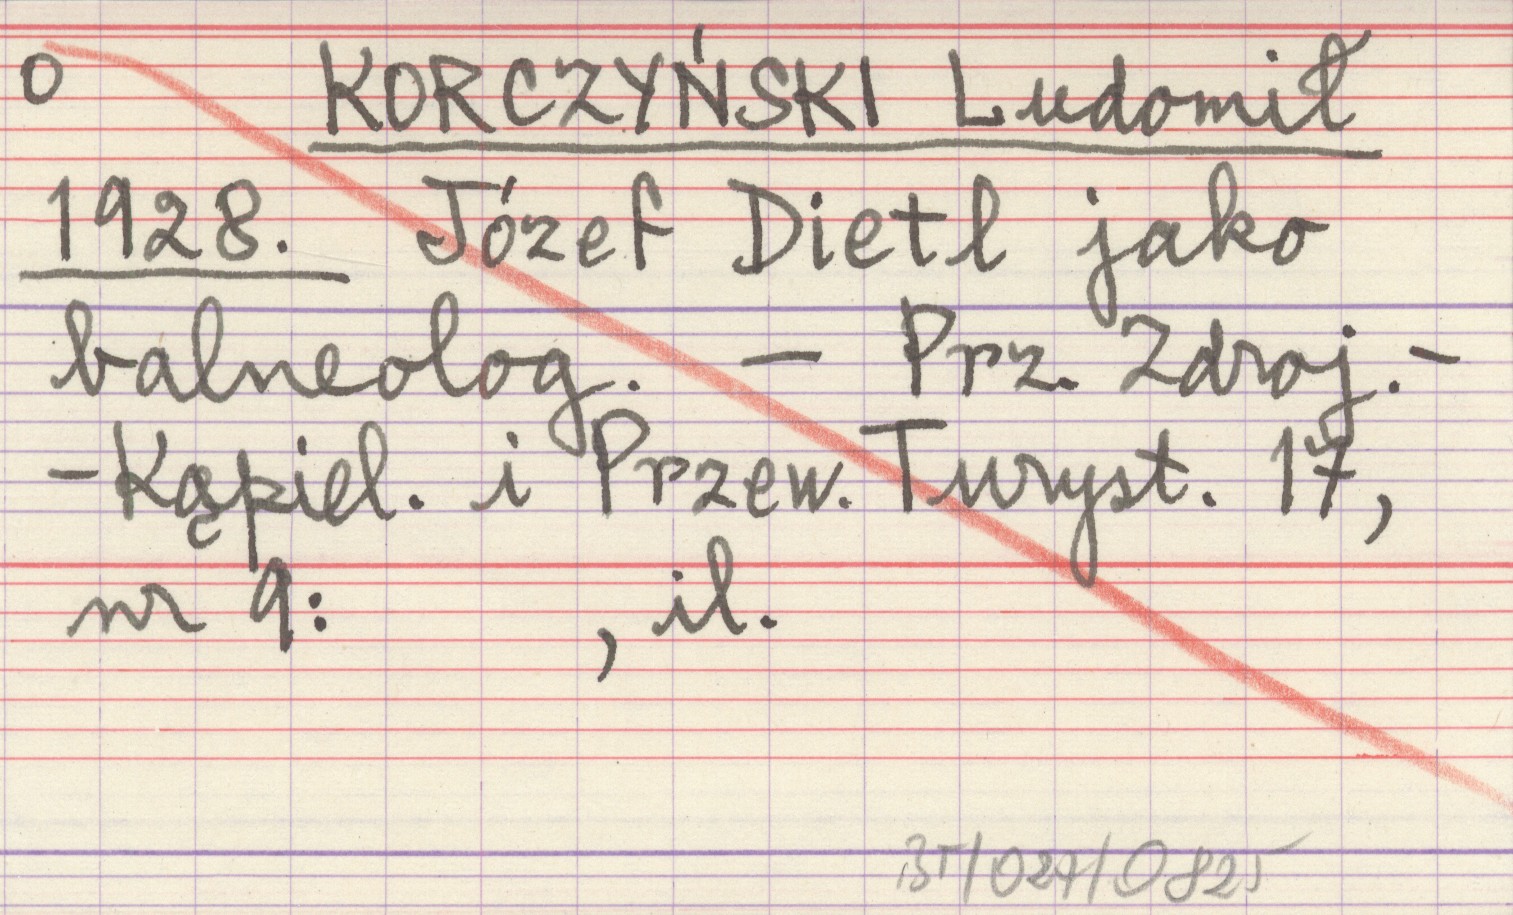 O KORCZYŃSKI Ludomił
1928. Józef Dietl jako
balneolog. — Prz. Zdroj.-
-Kąpiel. i Przew. Turyst. 17,
nr 9: , il.
BT/027/0825